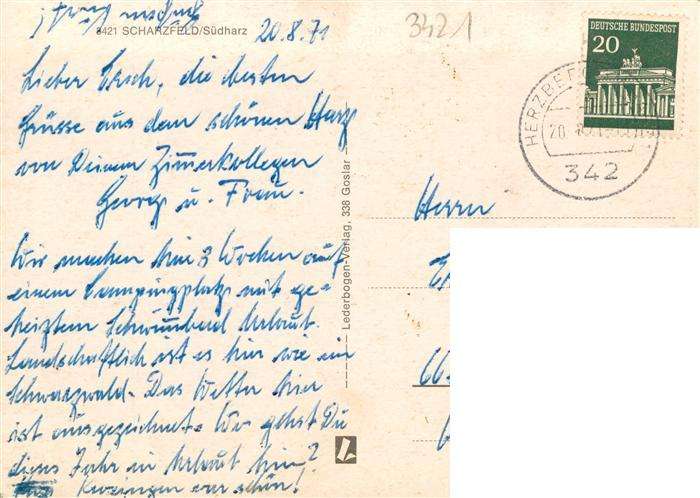 3421 SCHARZFELD/Südharz
20.8.71
3421
Lieber Ersch, die besten
Grüsse aus dem schönen Harz
von Deinem Zimmerkollegen
Georg u. Frau.
Wir machen hier 3 Wochen auf
einem Campingplatz mit ge=
heiztem Schwimmbad Urlaub.
Landschaftlich ist es hier wie im
Schwarzwald. Das Wetter hier
ist ausgezeichnet. Wo gehst Du
dieses Jahr in Urlaub hin?
war schön!
Lederbogen-Verlag, 338 Goslar
DEUTSCHE BUNDESPOST
20
HERZBERG
342
Herrn
66